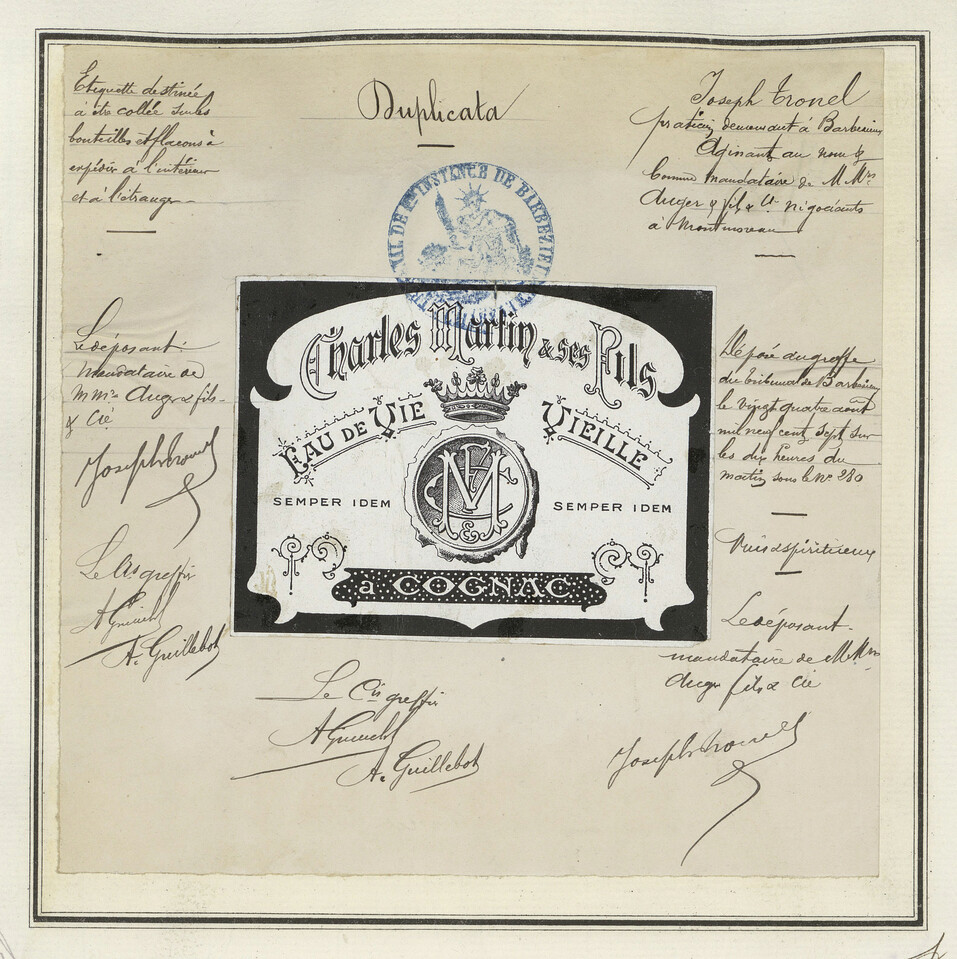 Duplicata
Etiquette destinée
à être collée sur les
bouteilles et flacons à
expédier à l'intérieur
et à l'étranger
Joseph Tronel
praticien demeurant à Barbezieux
Agissant au nom &
comme mandataire de M Mrs
Auger & fils & Cie négociants
à Montmoreau
TRIBUNAL DE 1ère INSTANCE DE BARBEZIEUX
Charles Martin & ses Fils
EAU DE VIE VIEILLE
SEMPER IDEM SEMPER IDEM
à COGNAC
Le déposant:
mandataire de
M Mrs Auger & fils
& Cie
Joseph Tronel
Le Cis greffier
A Guillebot
A. Guillebot
Déposé au greffe
du tribunal de Barbezieux
le vingt quatre août
mil neuf cent sept sur
les dix heures du
matin sous le No 280
Vins & spiritueux
Le déposant
mandataire de M Mrs
Auger fils & Cie
Joseph Tronel
Le Cis greffier
A Guillebot
A. Guillebot